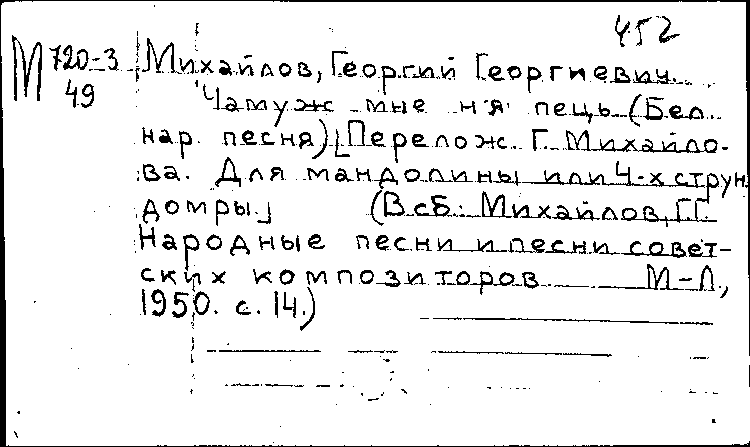 452
М 720-3 Михайлов, Георгий Георгиевич.
49 Чамуж мне ня пець (Бел.
нар. песня) [Перелож. Г. Михайло-
ва. Для мандолины или 4-х струн.
домры.] (В сб.: Михайлов, Г.Г.
Народные песни и песни совет-
ских композиторов М-Л.,
1950. с. 14.)